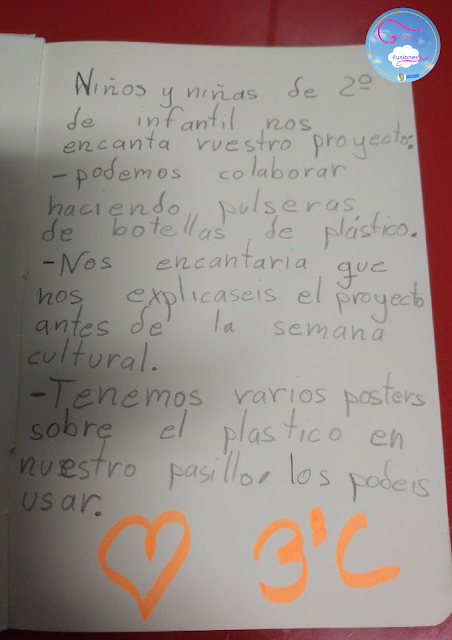 ilusiones
Niños y niñas de 2º
de infantil nos
encanta vuestro proyecto:
- podemos colaborar
haciendo pulseras
de botellas de plástico.
- Nos encantaria que
nos explicaseis el proyecto
antes de la semana
cultural.
- Tenemos varios posters
sobre el plastico en
nuestro pasillo, los podeis
usar.
3'C